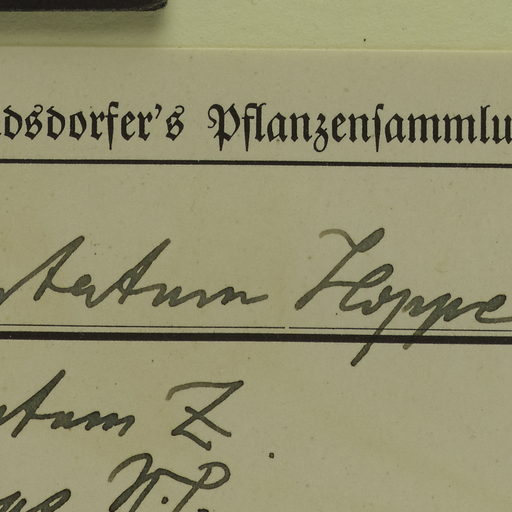 dsdorfer's Pflanzensammlu
tatum Hoppe
tum Z